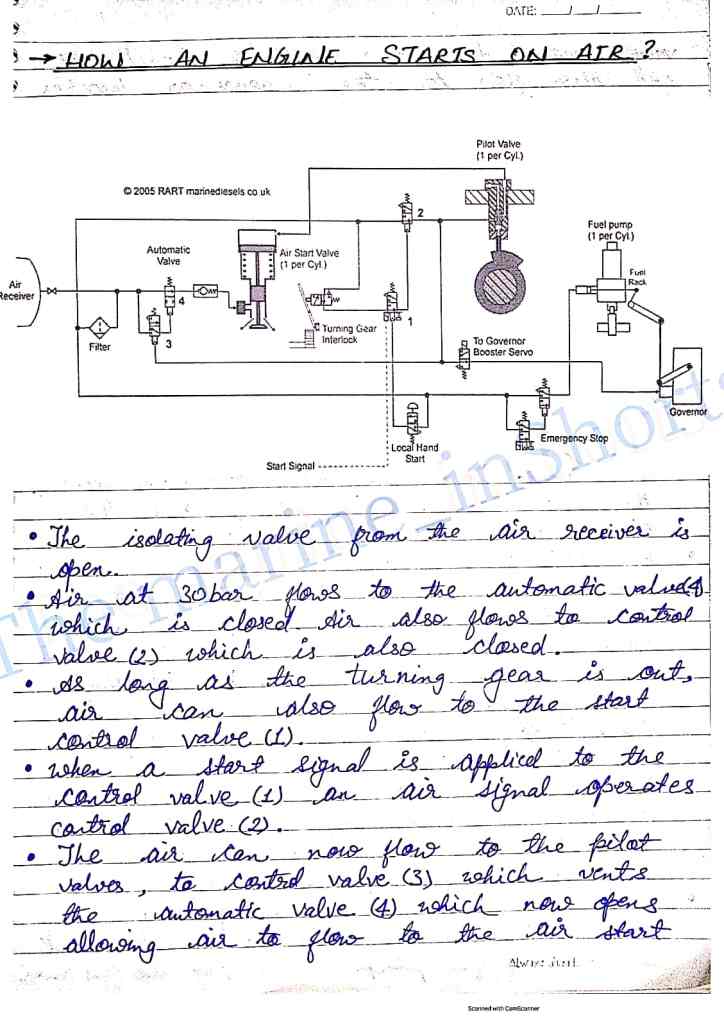 DATE: ___/___/___
→ HOW AN ENGINE STARTS ON AIR ?
Pilot Valve
(1 per Cyl.)
© 2005 RART marinediesels co uk
2
Fuel pump
(1 per Cyl.)
Automatic
Valve
Air Start Valve
(1 per Cyl.)
Fuel
Rack
Air
Receiver
4
1
Turning Gear
Interlock
Filter
3
To Governor
Booster Servo
Governor
Emergency Stop
Local Hand
Start
Start Signal
The marine_inShorts
• The isolating valve from the air receiver is
open.
• Air at 30bar flows to the automatic valve(4)
which is closed. Air also flows to control
valve (2) which is also closed.
• As long as the turning gear is out,
air can also flow to the start
control valve (1).
• when a start signal is applied to the
control valve (1) an air signal operates
control valve (2).
• The air can now flow to the pilot
valves, to control valve (3) which vents
the automatic valve (4) which now opens
allowing air to flow to the air start
Scanned with CamScanner